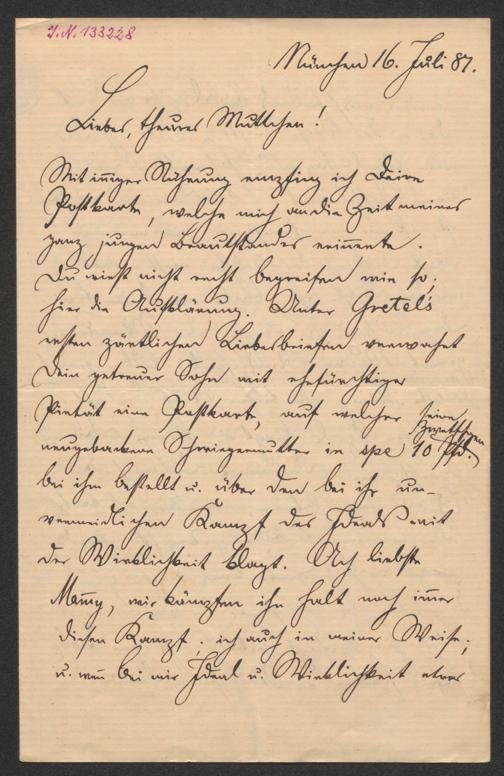 I.N. 133228
München 16. Juli 87.
Liebes, theures Muttchen!
Mit inniger Rührung empfing ich Deine
Postkarte, welche mich an die Zeit meines
ganz jungen Brautstandes erinnerte.
Du wirst nicht recht begreifen wie so;
hier die Aufklärung. Unter Gretel's
ersten zärtlichen Liebesbriefen verwahrt
Dein getreuer Sohn mit ehrfürchtiger
Pietät eine Postkarte, auf welcher seine
neugebackene Schwiegermutter in spe 10 Pfd. Zwetschgen
bei ihm bestellt u. über den bei ihr un-
vermeidlichen Kampf des Ideals mit
der Wirklichkeit klagt. Ach liebste
Mamy, wir kämpfen ihn halt noch immer
diesen Kampf; ich auch in meiner Weise;
u. wenn bei mir Ideal u. Wirklichkeit etwas